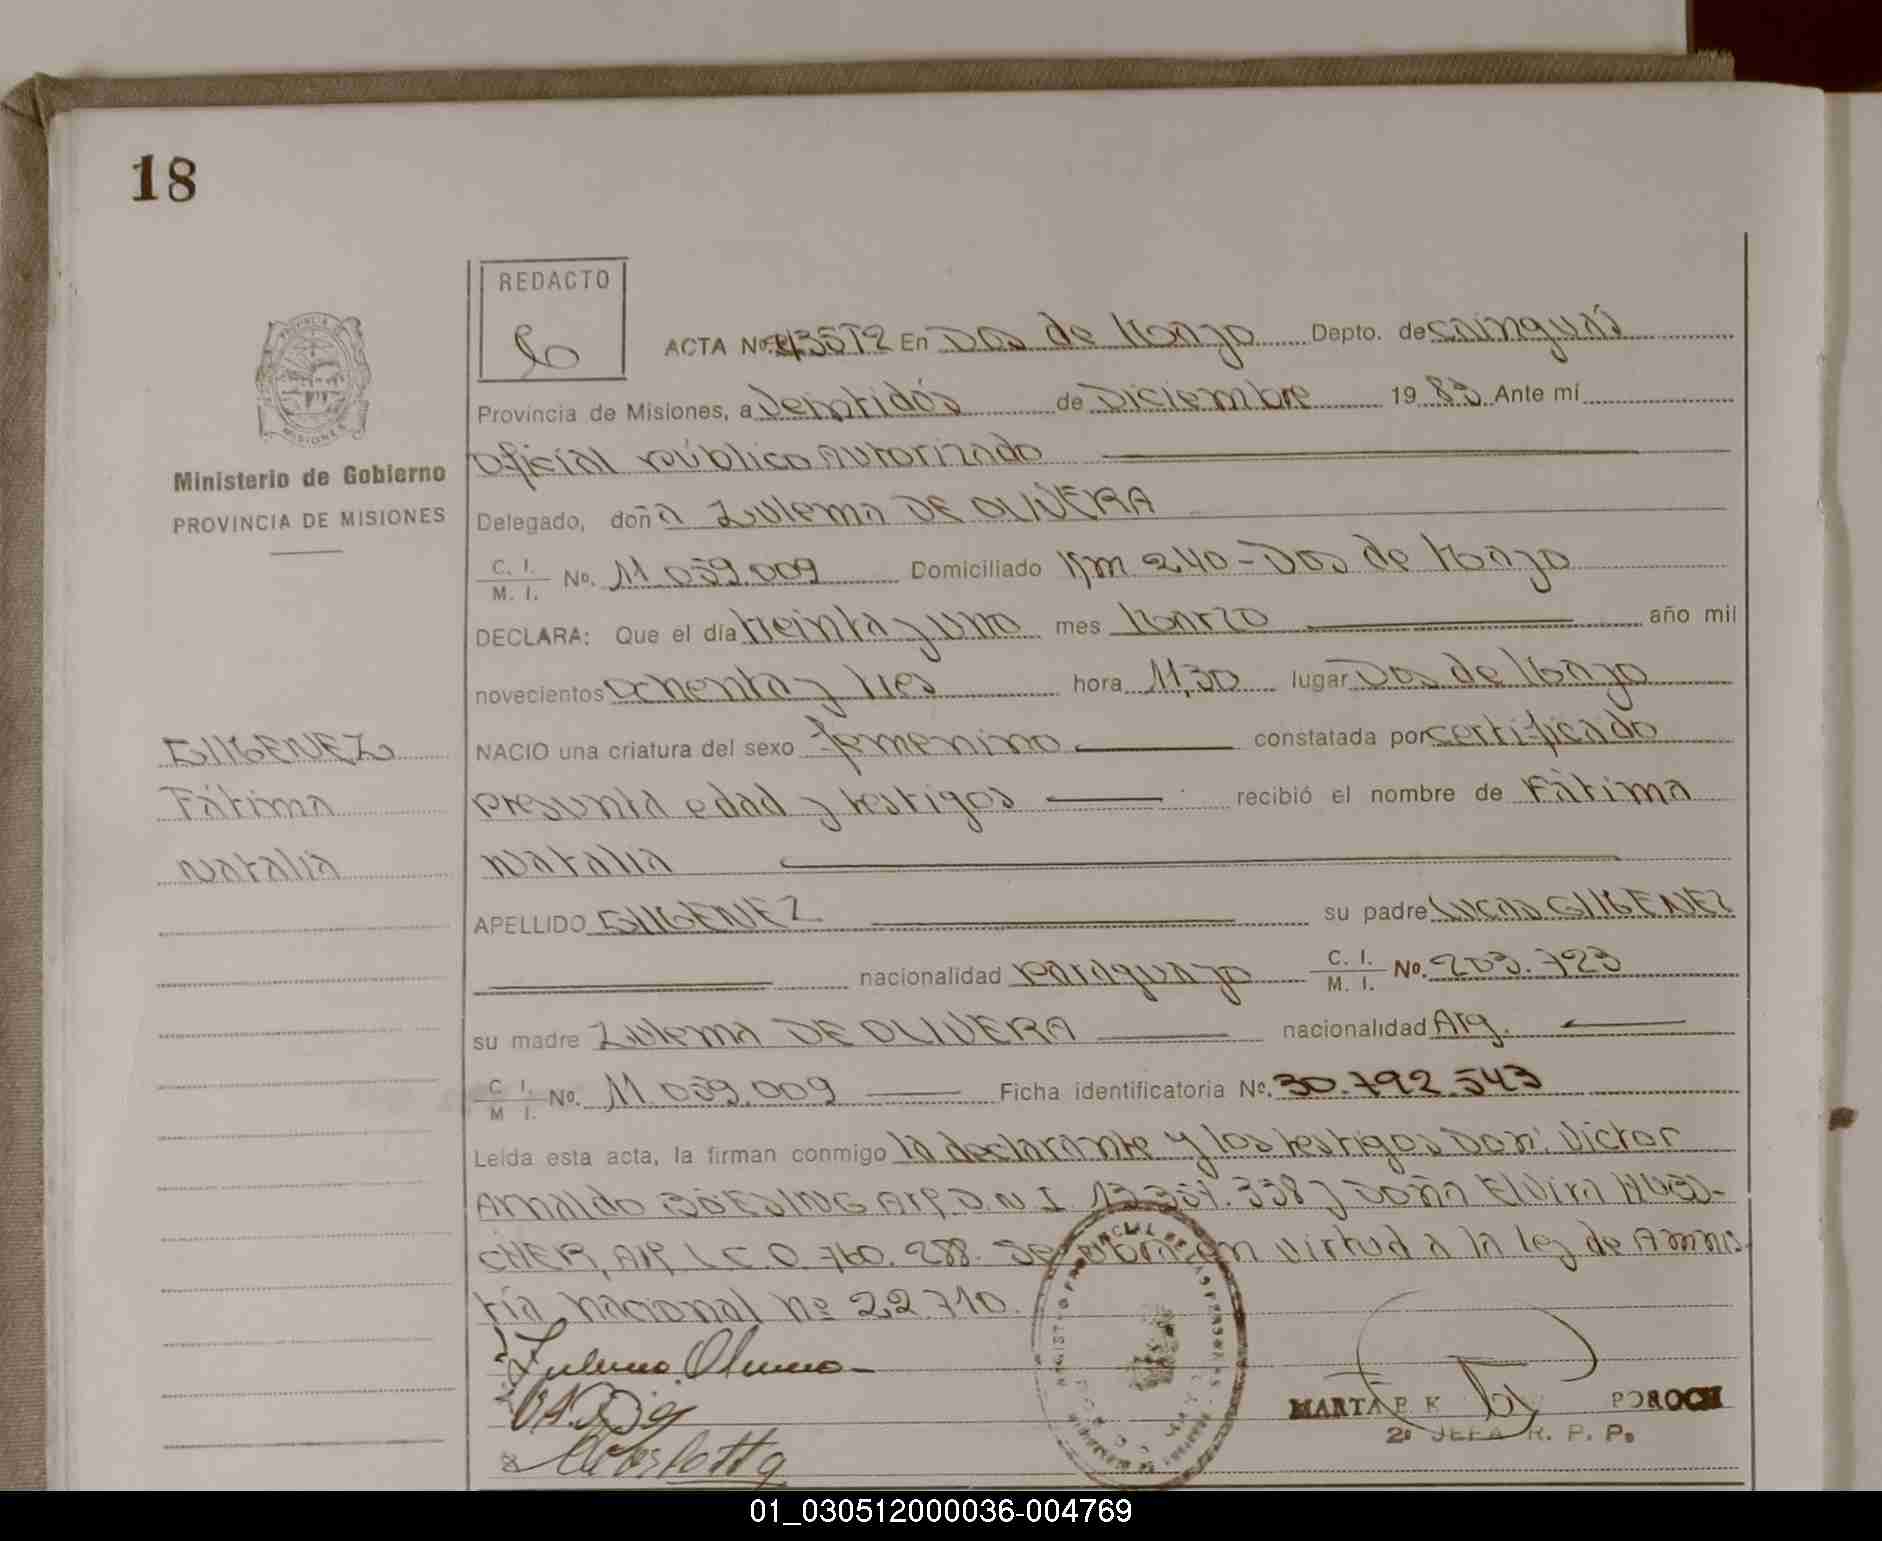 18
REDACTO
ACTA No. 43572 En Dos de Mayo Depto. de Cainguás
Provincia de Misiones, a Veintidós de Diciembre 1983 Ante mí
Oficial Público Autorizado
Ministerio de Gobierno
PROVINCIA DE MISIONES
Delegado, doña Zulema DE OLIVERA
C. I. M. I. No. 11.059.009 Domiciliado Km 240 - Dos de Mayo
DECLARA: Que el día treinta y uno mes Marzo año mil
novecientos ochenta y tres hora 11,30 lugar Dos de Mayo
NACIO una criatura del sexo femenino constatada por certificado
presunta edad y testigos recibió el nombre de Fátima
Natalia
GIMENEZ
Fátima
Natalia
APELLIDO GIMENEZ su padre Lucas GIMENEZ
nacionalidad Paraguayo C. I. M. I. No. 203.723
su madre Zulema DE OLIVERA nacionalidad Arg.
C. I. M. I. No. 11.059.009 Ficha identificatoria No. 30.792.543
Leída esta acta, la firman conmigo la declarante y los testigos Don: Victor
Arnaldo Arg. D.N.I. y Doña Elvira
CHER, Arg. L.C. 0.760.288. Se labra en virtud a la ley de Amnis
tía Nacional Nº 22.710.
MARTA P. K POROCH
2º JEFA R. P. P.
01_030512000036-004769